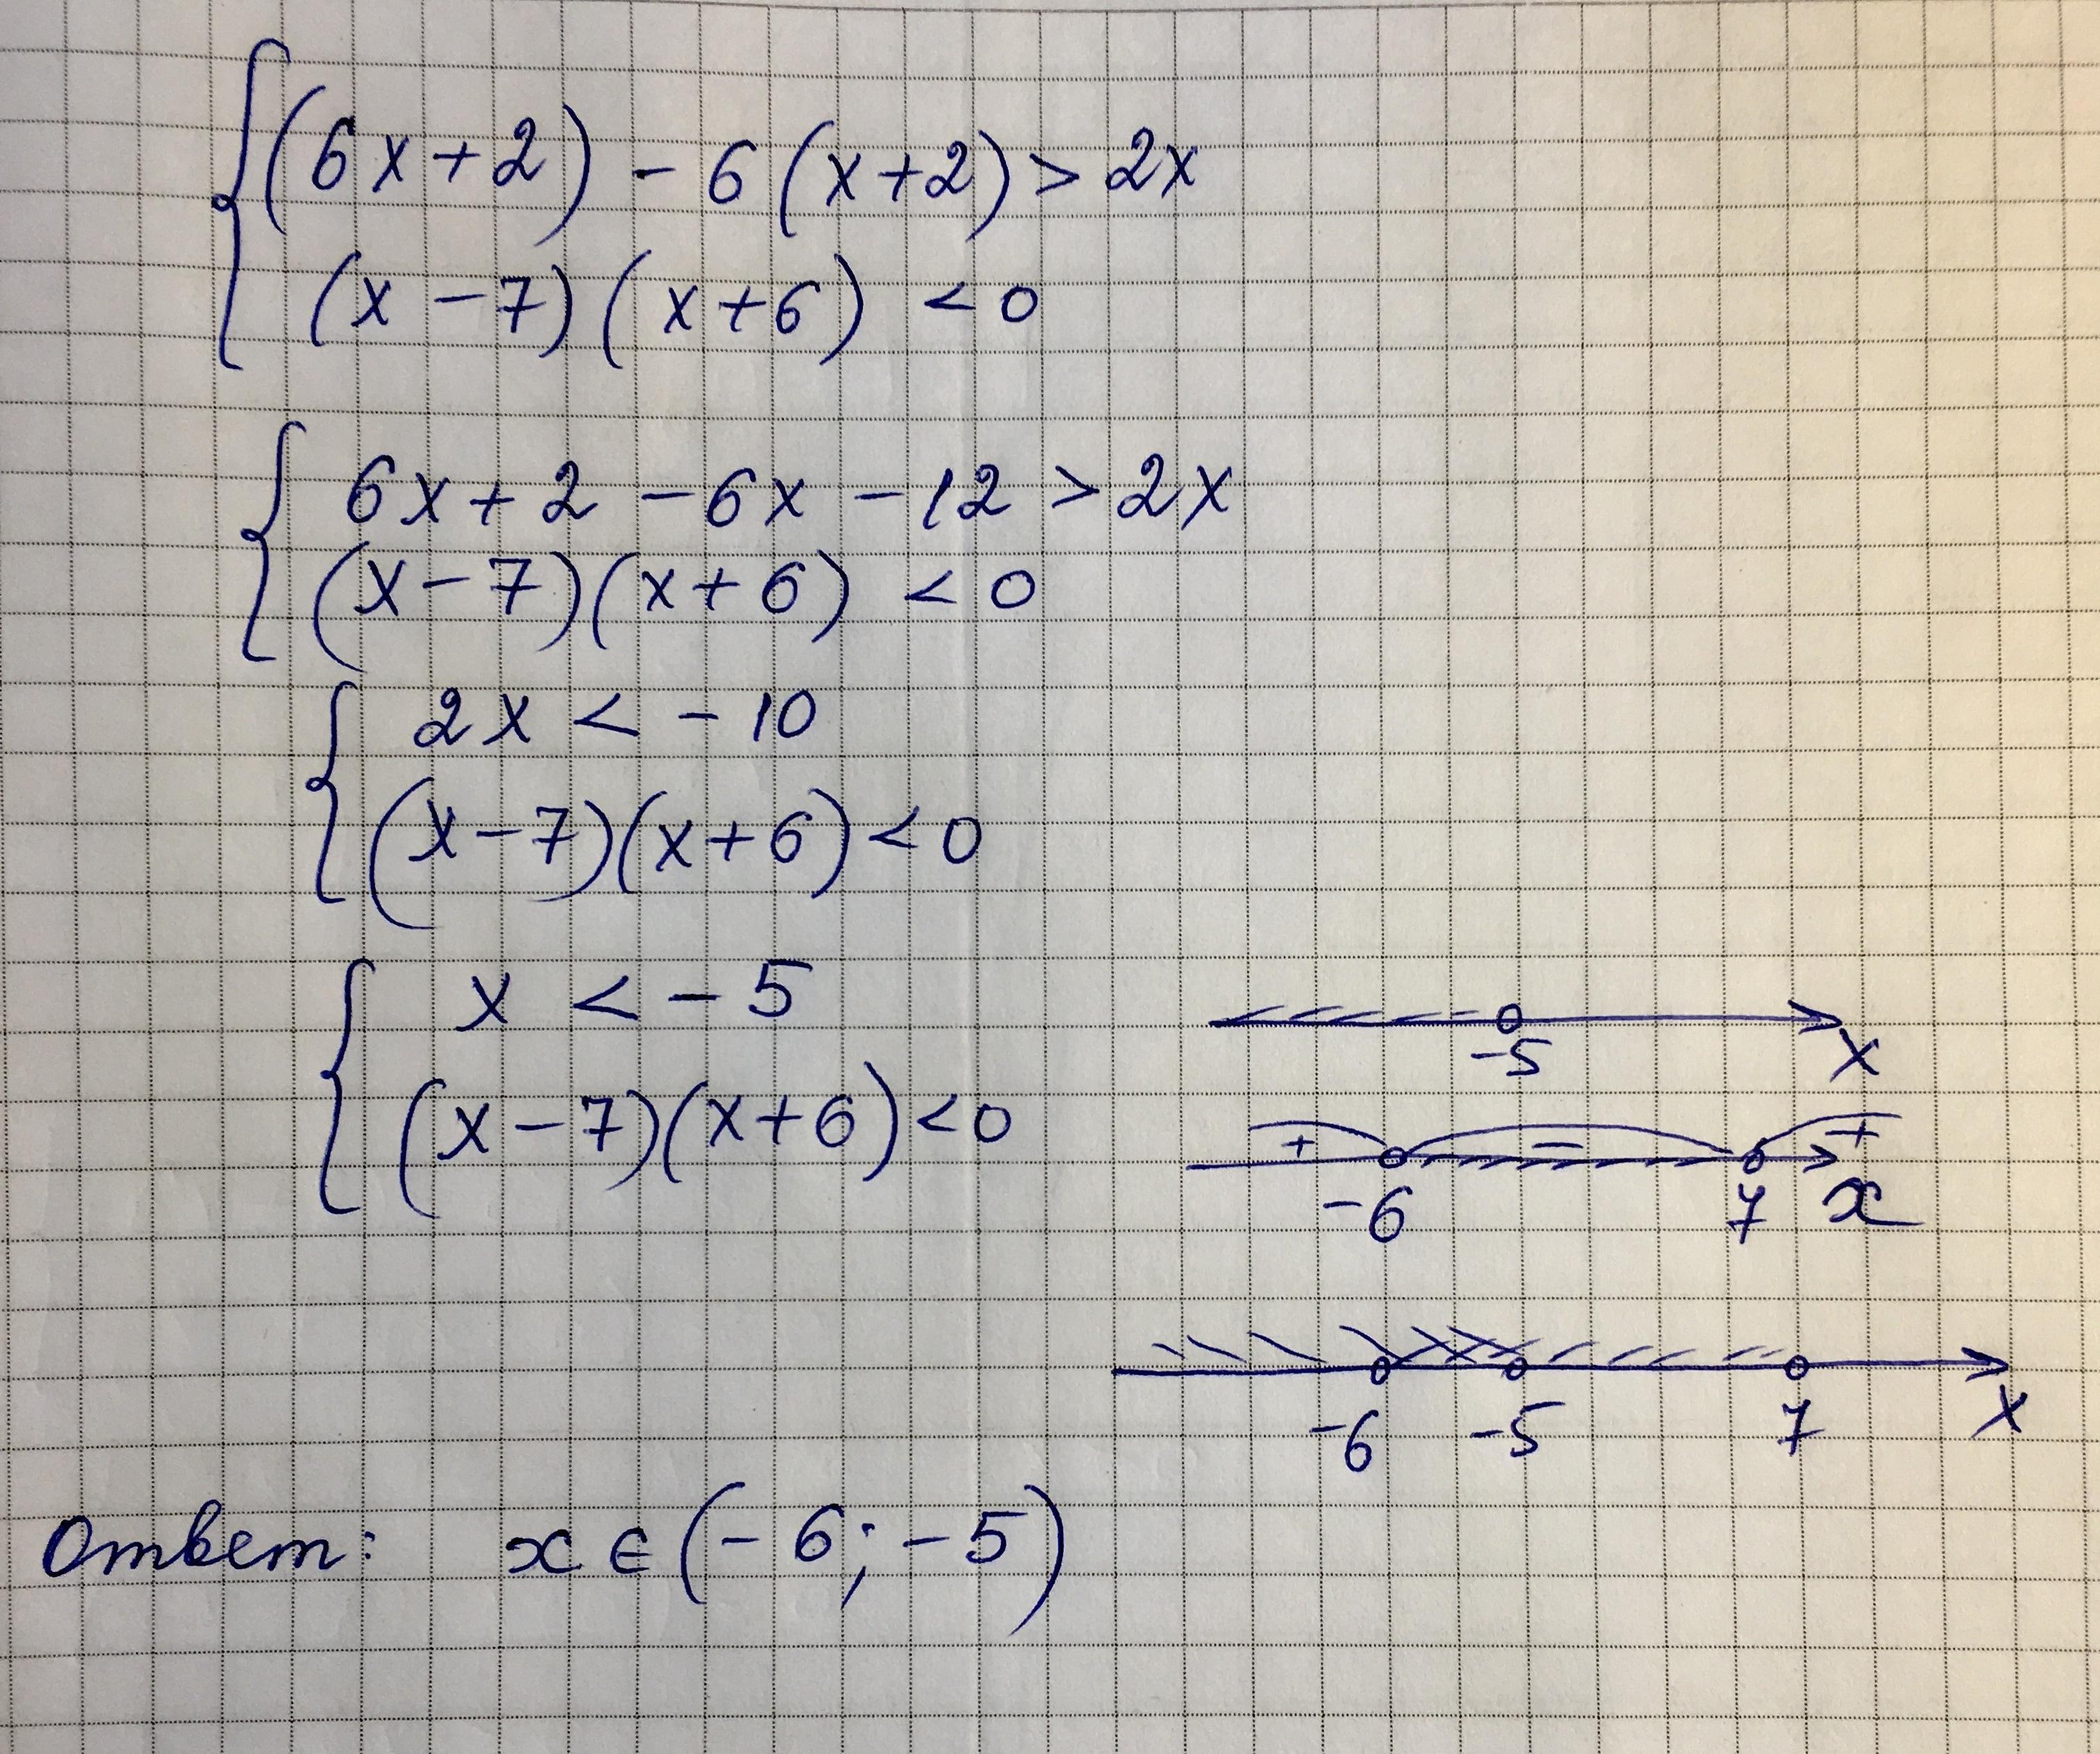 (6x+2) - 6(x+2) > 2x
(x-7)(x+6) < 0
6x+2 - 6x - 12 > 2x
(x-7)(x+6) < 0
2x < -10
(x-7)(x+6) < 0
x < -5
(x-7)(x+6) < 0
-5 x
+ - +
-6 7 x
-6 -5 7 x
Ответ: x ∈ (-6; -5)